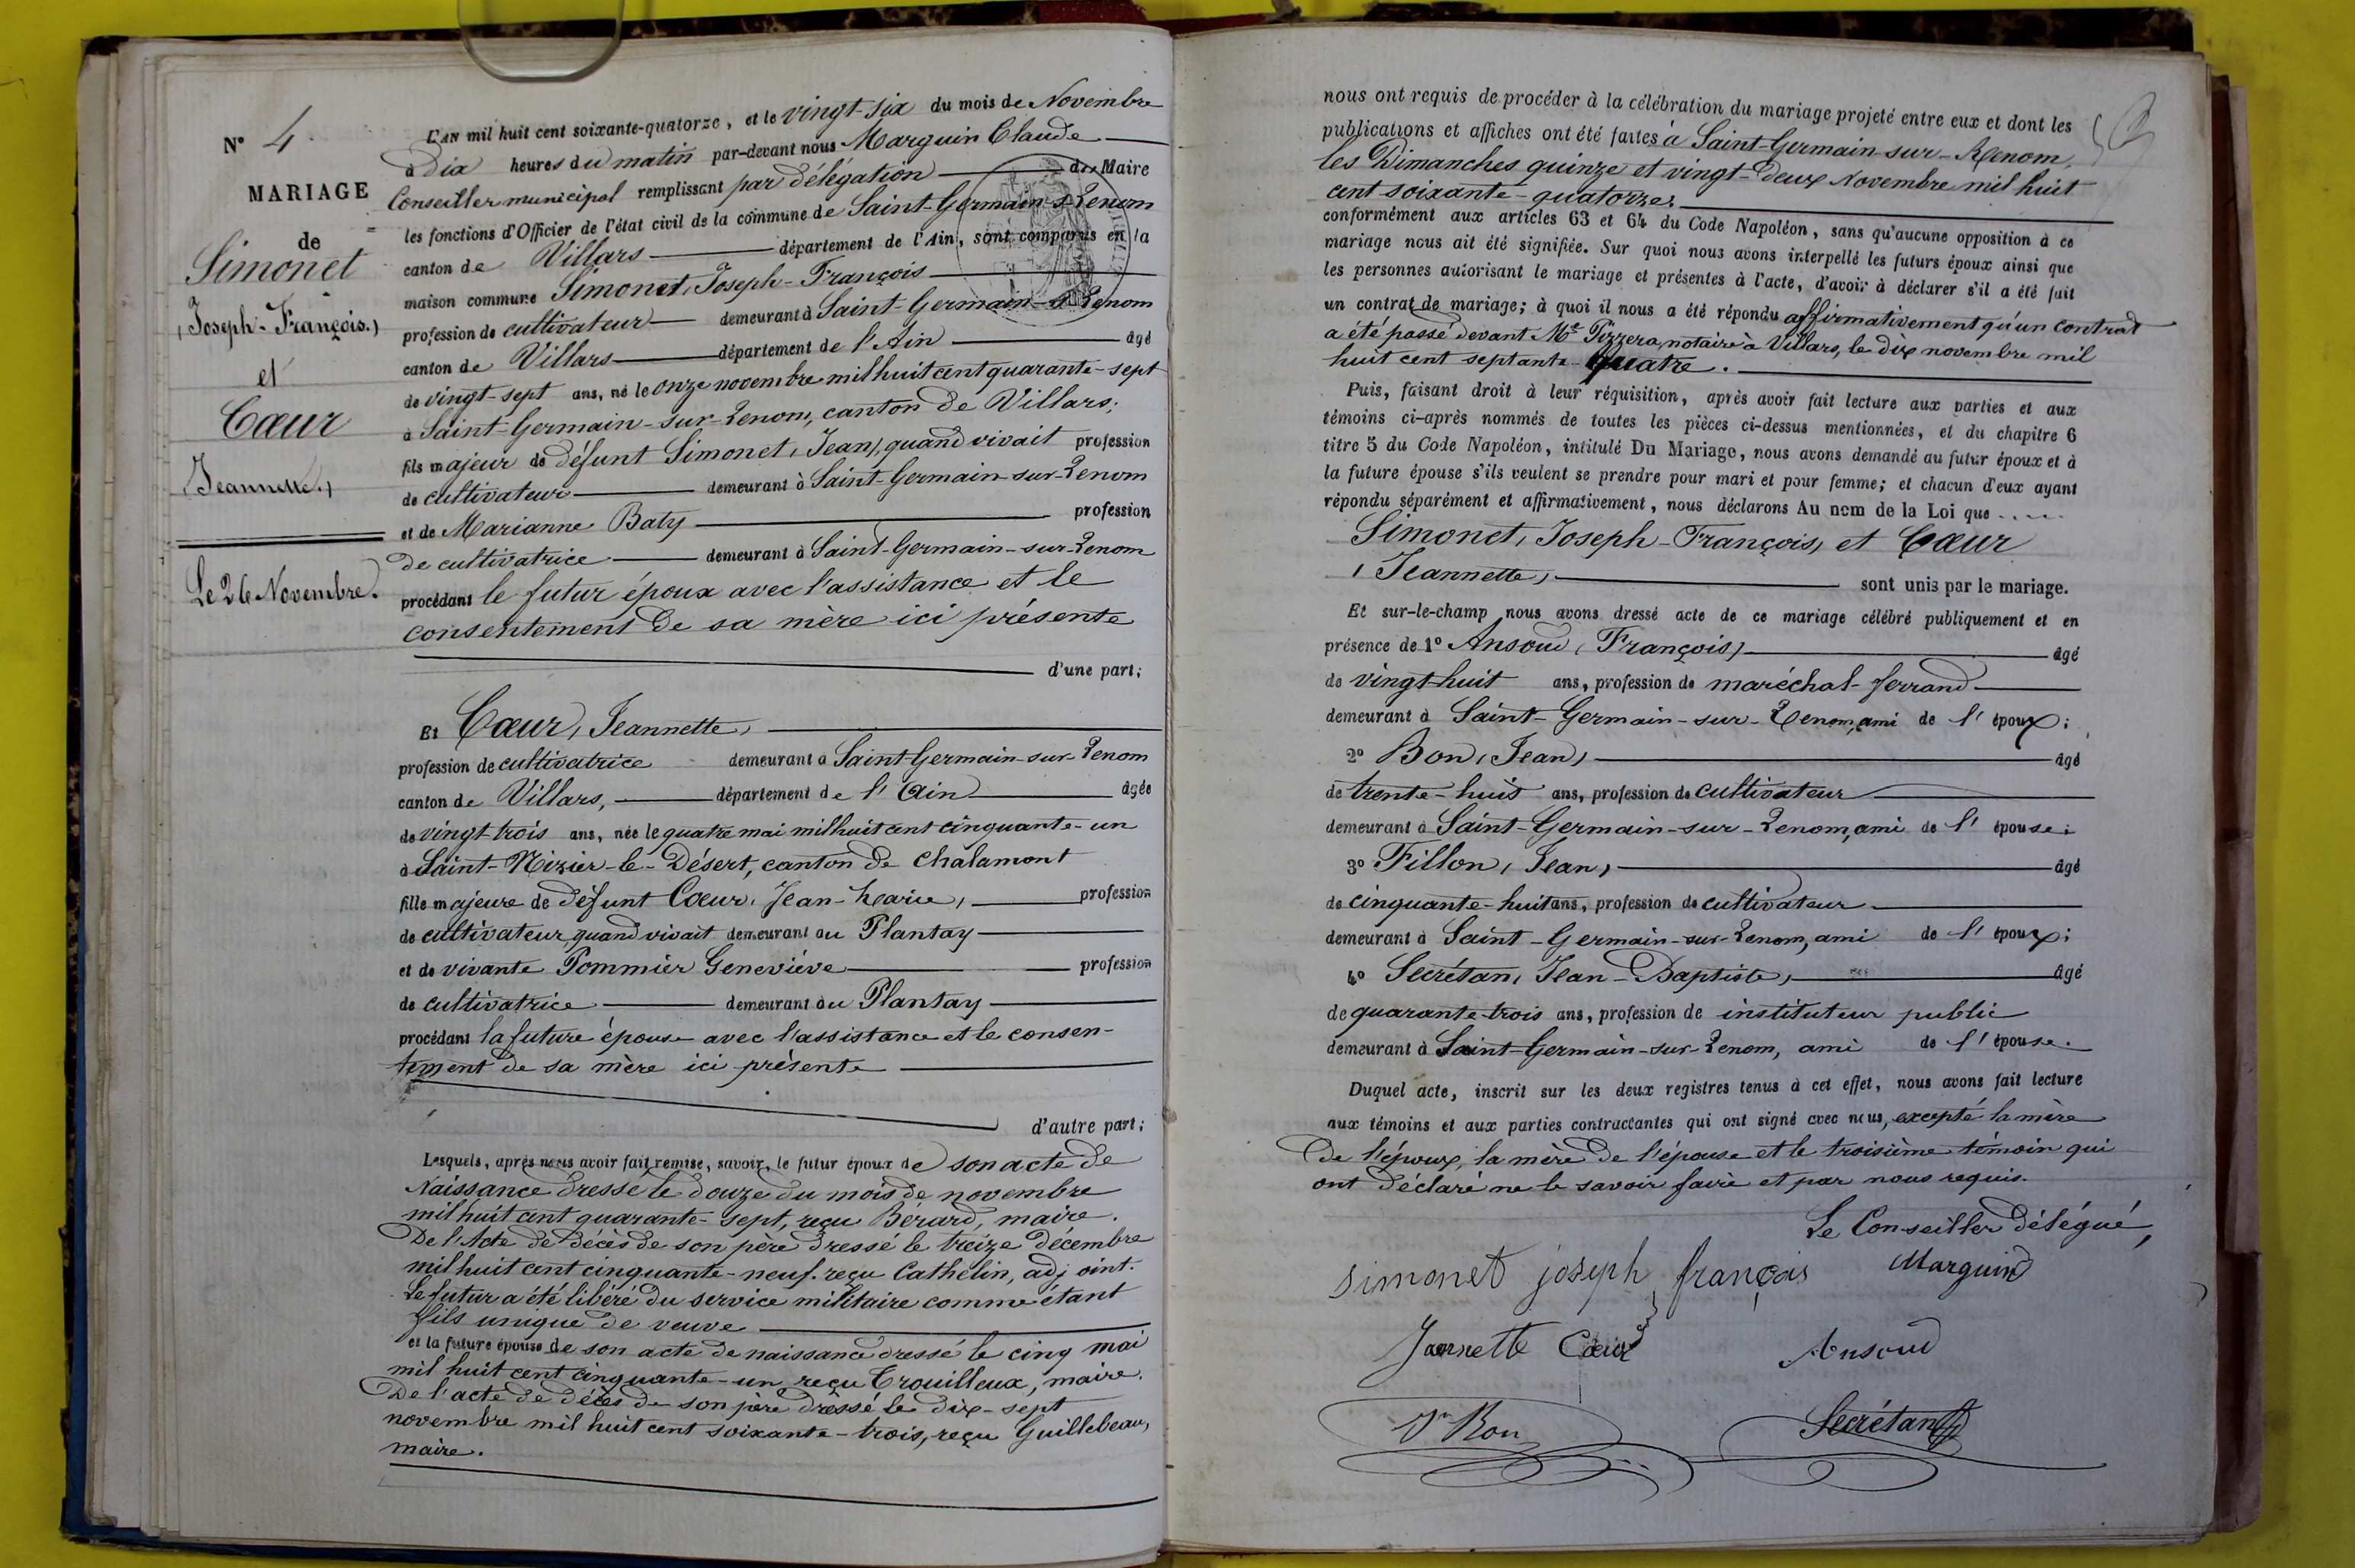 N° 4.
MARIAGE
de
Simonet
(Joseph-François.)
et
Cœur
(Jeannette.)
Le 26 Novembre.
L'AN mil huit cent soixante-quatorze, et le vingt-six du mois de Novembre
à Dix heures du matin par-devant nous Marguin Claude
Conseiller municipal remplissant par délégation du Maire
les fonctions d'Officier de l'état civil de la commune de Saint-Germain-s-Renom
canton de Villars département de l'Ain, sont comparus en la
maison commune Simonet, Joseph-François
profession de cultivateur demeurant à Saint-Germain-s-Renom
canton de Villars département de l'Ain âgé
de vingt-sept ans, né le onze novembre mil huit cent quarante-sept
à Saint-Germain-sur-Renom, canton de Villars;
fils majeur de défunt Simonet (Jean), quand vivait profession
de cultivateur demeurant à Saint-Germain-sur-Renom
et de Marianne Baty profession
de cultivatrice demeurant à Saint-Germain-sur-Renom
procédant le futur époux avec l'assistance et le
consentement de sa mère ici présente
d'une part;
Et Cœur (Jeannette)
profession de cultivatrice demeurant à Saint-Germain-sur-Renom
canton de Villars, département de l'Ain âgée
de vingt-trois ans, née le quatre mai mil huit cent cinquante-un
à Saint-Nizier-le-Désert, canton de Chalamont
fille majeure de défunt Cœur (Jean-Marie) profession
de cultivateur quand vivait demeurant au Plantay
et de vivante Pommier Geneviève profession
de cultivatrice demeurant au Plantay
procédant la future épouse avec l'assistance et le consen-
tement de sa mère ici présente
d'autre part;
Lesquels, après nous avoir fait remise, savoir, le futur époux de son acte de
Naissance dressé le douze du mois de novembre
mil huit cent quarante-sept, reçu Bérard, maire.
De l'Acte de décès de son père dressé le treize Décembre
mil huit cent cinquante-neuf. reçu Cathelin, adjoint.
Le futur a été libéré du service militaire comme étant
fils unique de veuve
et la future épouse de son acte de naissance dressé le cinq mai
mil huit cent cinquante-un reçu Trouilleux, maire.
De l'acte de décès de son père dressé le dix-sept
novembre mil huit cent soixante-trois, reçu Guillebeau,
maire.
nous ont requis de procéder à la célébration du mariage projeté entre eux et dont les
publications et affiches ont été faites à Saint-Germain-sur-Renom
les Dimanches quinze et vingt-deux Novembre mil huit
cent soixante-quatorze.
conformément aux articles 63 et 64 du Code Napoléon, sans qu'aucune opposition à ce
mariage nous ait été signifiée. Sur quoi nous avons interpellé les futurs époux ainsi que
les personnes autorisant le mariage et présentes à l'acte, d'avoir à déclarer s'il a été fait
un contrat de mariage; à quoi il nous a été répondu affirmativement qu'un contrat
a été passé devant Me Pizzera, notaire à Villars, le dix novembre mil
huit cent septante-quatre.
Puis, faisant droit à leur réquisition, après avoir fait lecture aux parties et aux
témoins ci-après nommés de toutes les pièces ci-dessus mentionnées, et du chapitre 6
titre 5 du Code Napoléon, intitulé Du Mariage, nous avons demandé au futur époux et à
la future épouse s'ils veulent se prendre pour mari et pour femme; et chacun d'eux ayant
répondu séparément et affirmativement, nous déclarons Au nom de la Loi que
Simonet, Joseph-François, et Cœur
(Jeannette) sont unis par le mariage.
Et sur-le-champ nous avons dressé acte de ce mariage célébré publiquement et en
présence de 1° Ansoud (François) âgé
de vingt-huit ans, profession de maréchal-ferrand
demeurant à Saint-Germain-sur-Renom, ami de l'époux;
2° Bon (Jean) âgé
de trente-huit ans, profession de cultivateur
demeurant à Saint-Germain-sur-Renom, ami de l'épouse;
3° Fillon (Jean) âgé
de cinquante-huit ans, profession de cultivateur
demeurant à Saint-Germain-sur-Renom, ami de l'époux;
4° Secrétan, Jean-Baptiste, âgé
de quarante-trois ans, profession de instituteur public
demeurant à Saint-Germain-sur-Renom, ami de l'épouse.
Duquel acte, inscrit sur les deux registres tenus à cet effet, nous avons fait lecture
aux témoins et aux parties contractantes qui ont signé avec nous, excepté la mère
de l'époux, la mère de l'épouse et le troisième témoin qui
ont déclaré ne le savoir faire et par nous requis.
Le Conseiller délégué,
simonet joseph françois Marguin
Jeannette Cœur Ansoud
Bon Secrétan